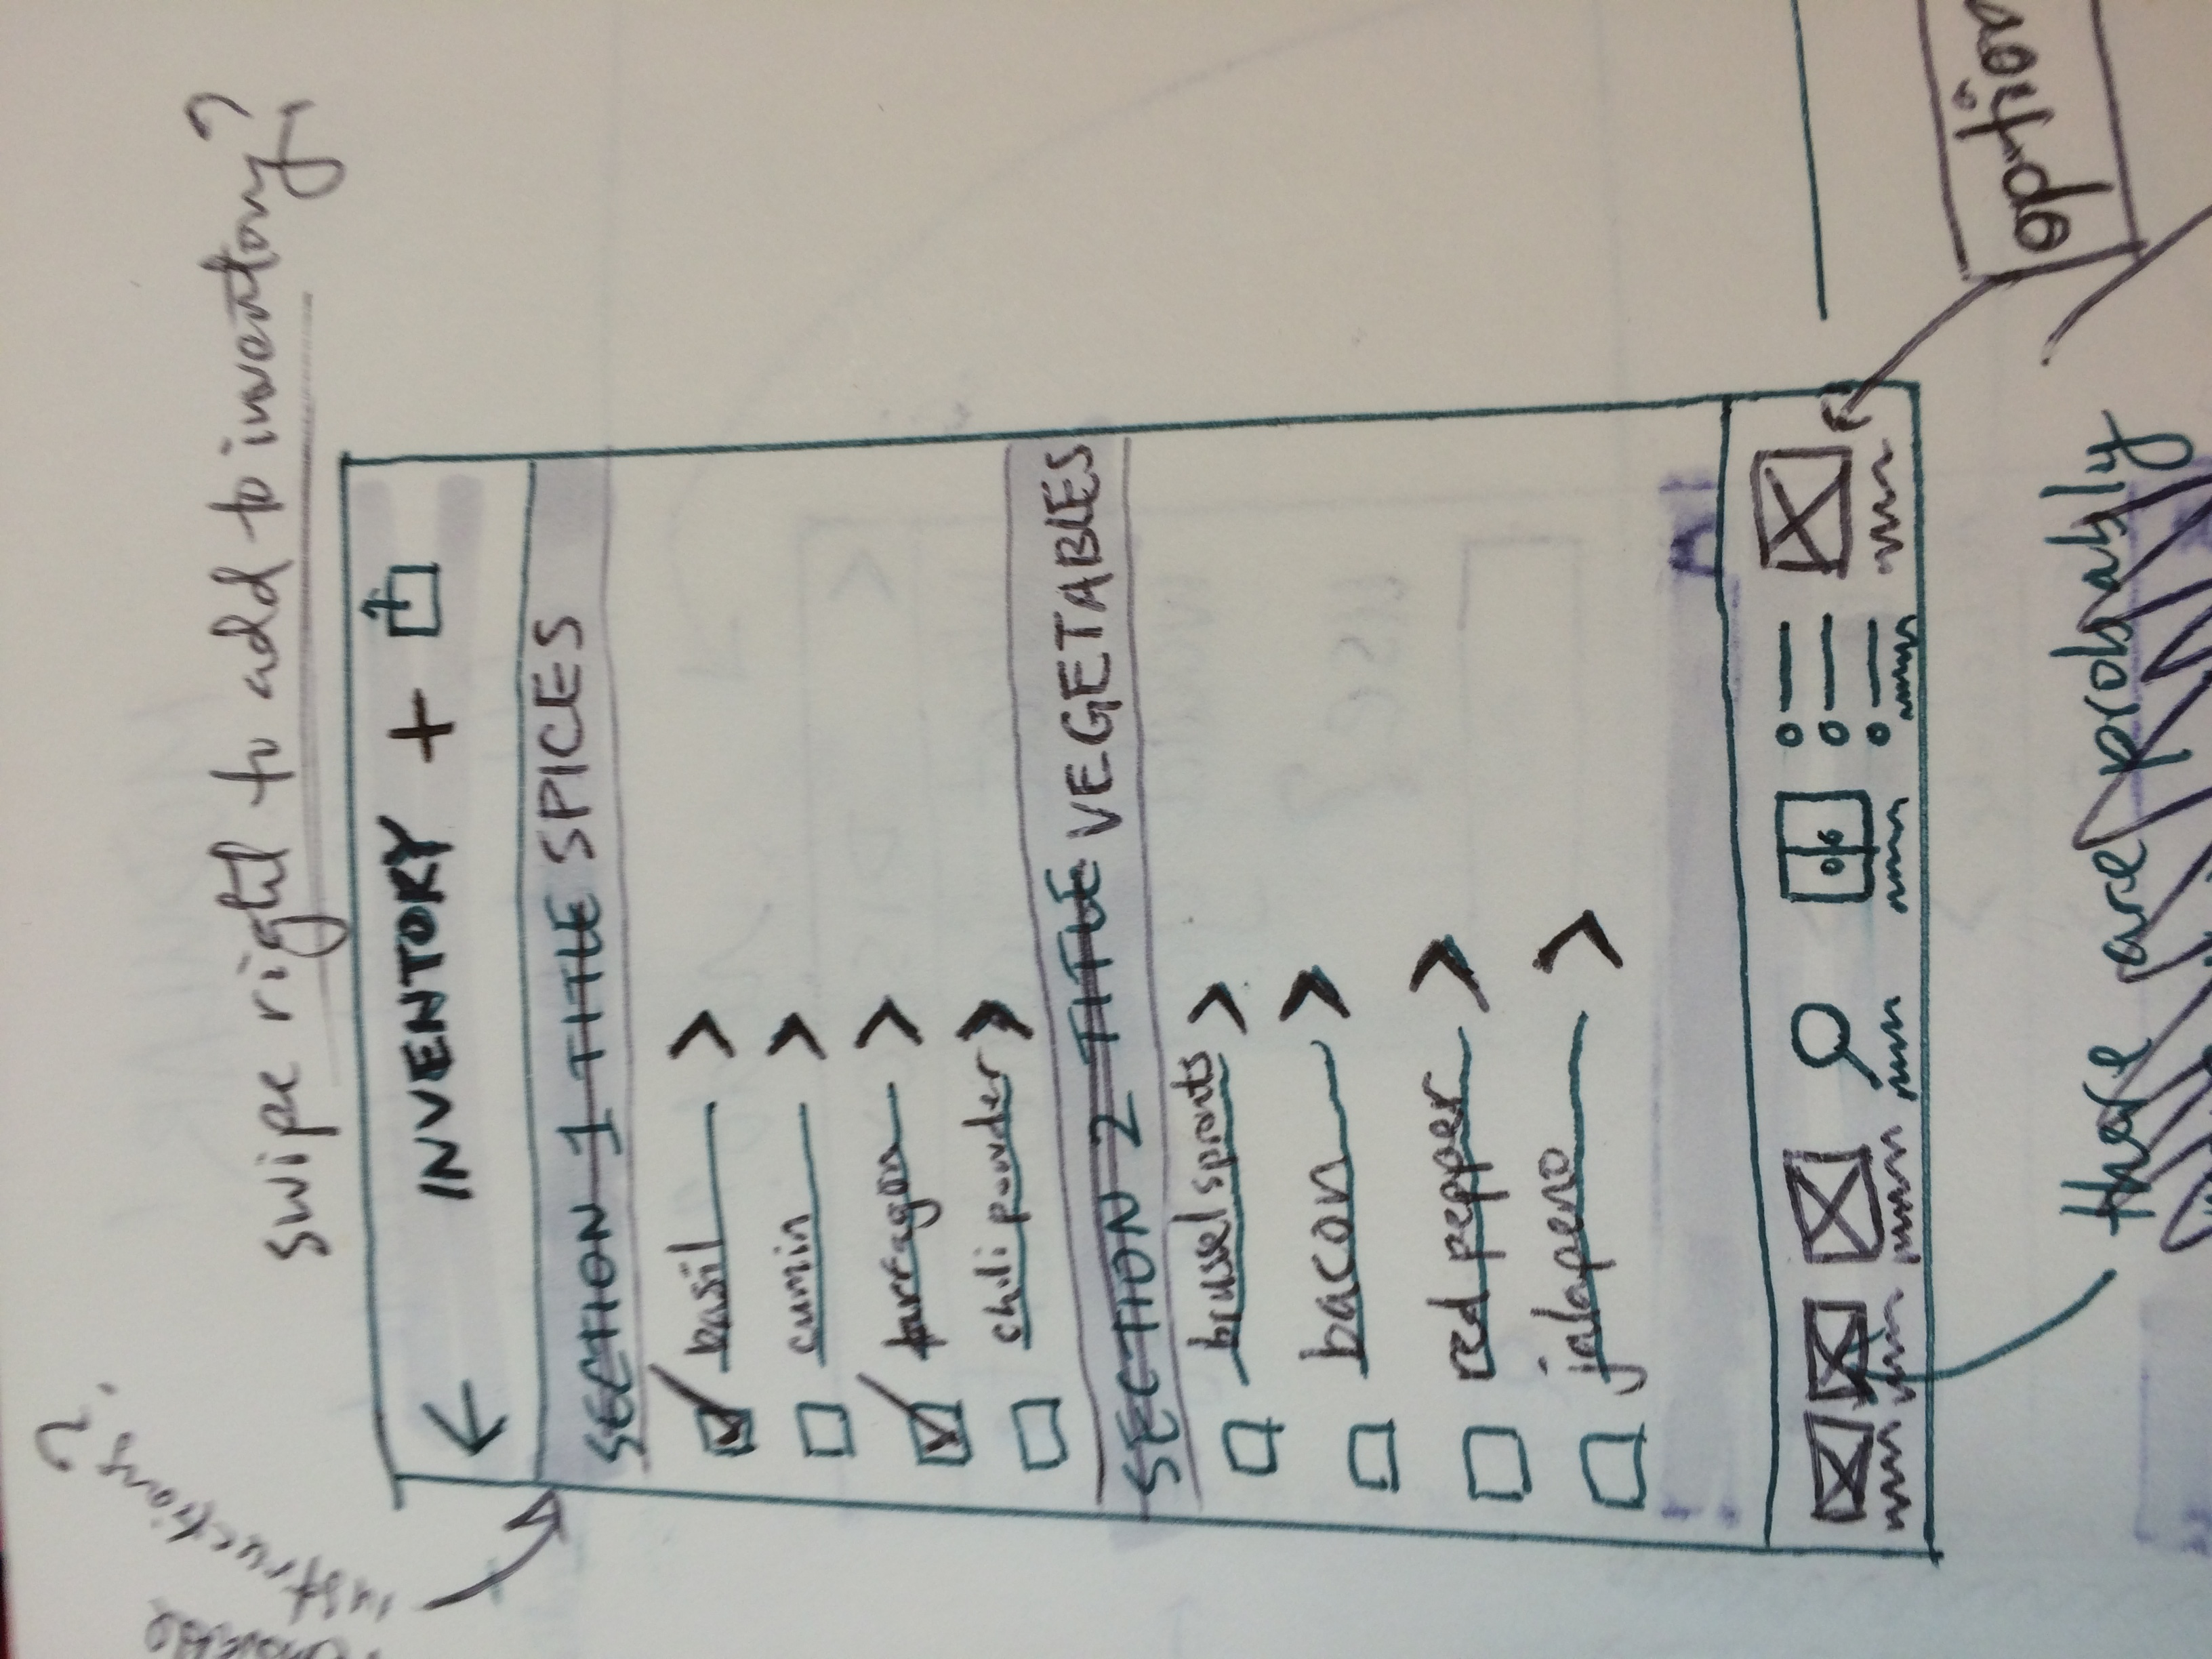 instructions?
swipe right to add to inventory?
← INVENTORY +
SECTION 1 TITLE SPICES
basil >
cumin >
tarragon >
chili powder >
SECTION 2 TITLE VEGETABLES
brussel sprouts >
bacon >
red pepper >
jalapeno >
option
there are probably